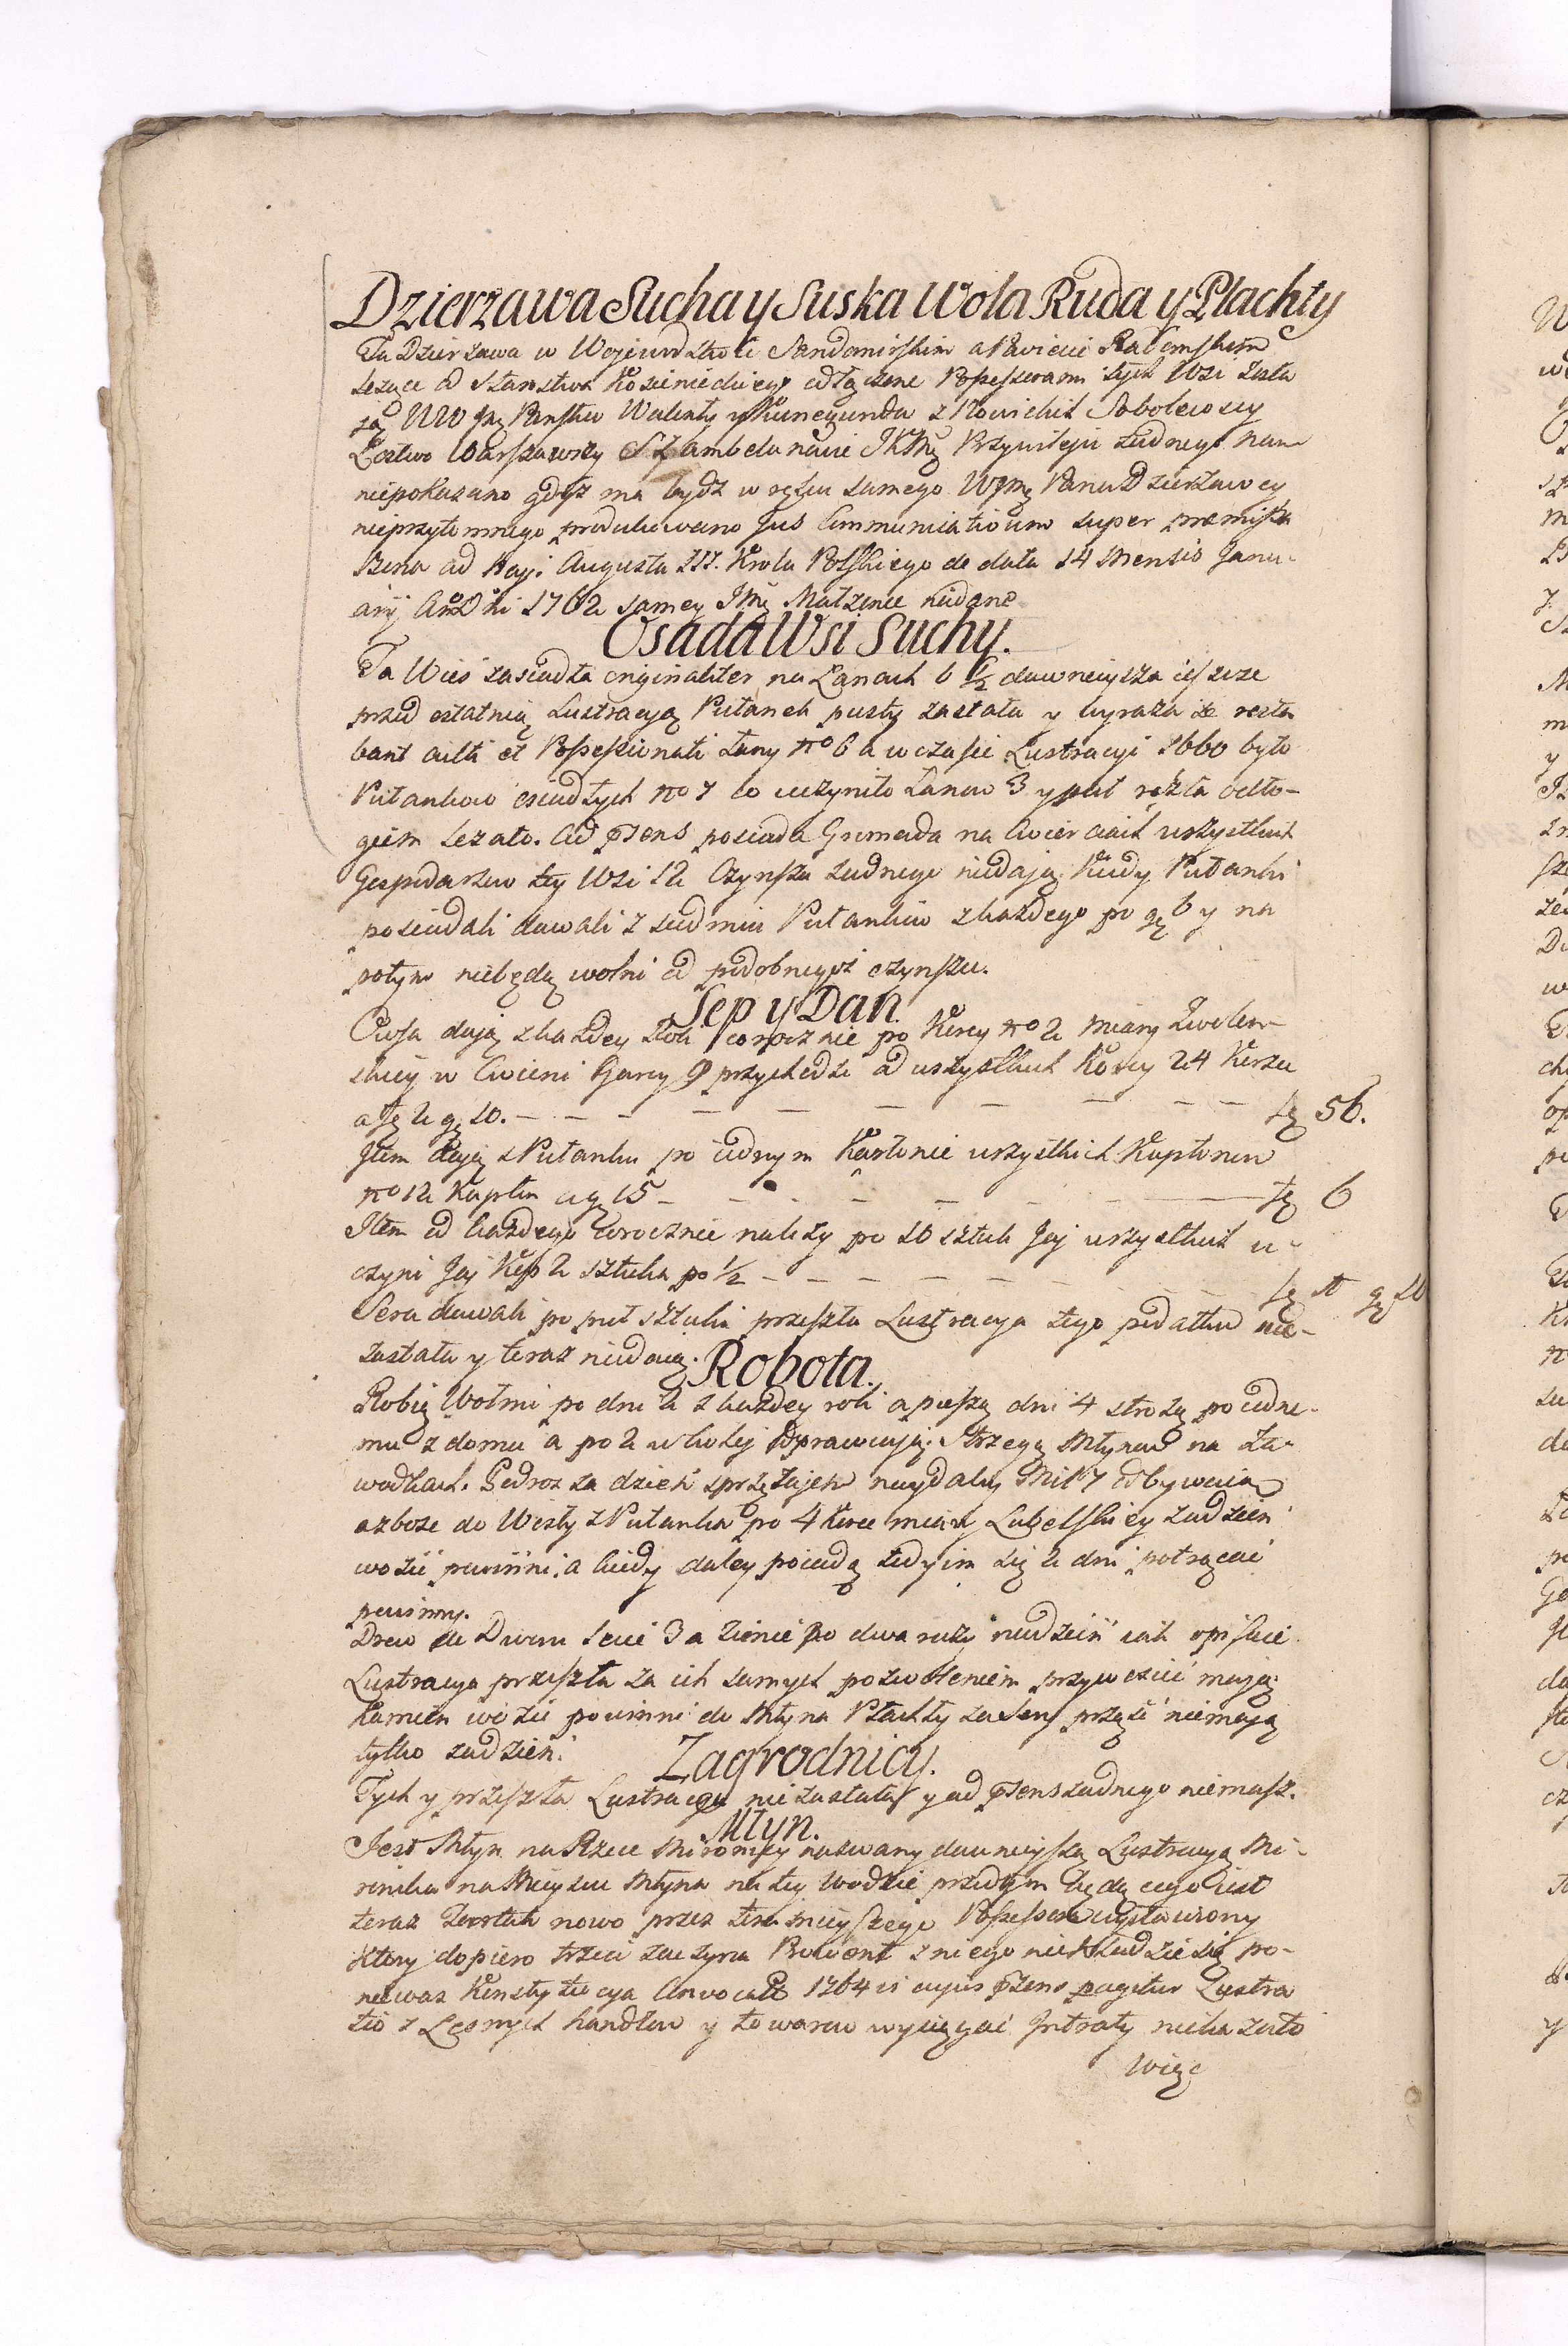 Dzierzawa Sucha y Suska Wola Ruda y Płachty
Ta Dzierzawa w Wojewodztwie Sandomirskim a Powiecie Radomskim
lezące od Starostwa Kozienickiego odłączone Possessorami tych Wsi zosta
ją WW Ich Państwo Walenty y Kunegunda z Sobolewscy
Warszawscy Szambelanowie JKMę Przywileju zadnego nam
niepokazano gdysz ma bydz w ręku samego WJmę Pana Dzierzawcy
nieprzytomnego produkowano Jus Communicativum super praemissa
Bona od Nayj: Augusta III. Krola Polskiego de data 14 Mensis Janu-
arij Ao Dni 1762 samey Jmę Małzonce nadane
Osada Wsi Suchy.
Ta Wies zasiadła originaliter na Łanach 6 1/2 dawnieysza ieszcze
przed ostatnią Lustracyą Pułanek pusty zastała y wyraza ze resta
bant culti et Possessionati Łany No 6 a w czasie Lustracyi 1660 było
Pułankow osiadłych No 7 co uczyniło Łanow 3 y puł reszta odło-
giem lezało. Ad praesens posiada Gromada na Cwierciach wszystkich
Gospodarzow tey Wsi 12 Czynszu zadnego niedają. Kiedy Pułanki
posiadali dawali z siedmiu Pułankow z kazdego po gę 6 y na
potym niebędą wolni od podobnegoż czynszu.
Sep y Dań.
Owsa dają z kazdey Roli corocznie po Korcy No 2 miary Zwolen-
skiey w Cwierci Garcy 9 przychodzi od wszystkich Korcy 24 Korzec
a fę 2 gę 10. - - - - - - - - - fę 56.
Item dają z Pułanku po iednym Kapłonie wszystkich Kapłonow
No 12 Kapłon a gę 15 - - - - - - fę 6
Item od kazdego corocznie nalezy po 10 sztuk Jaj wszystkich u-
czyni Jaj Kop 2 sztuka po 1/2 - - - - - - fę gę
Sera dawali po puł sztuki przeszła Lustracya tego podatku nie-
zastała y teraz niedają.
Robota.
Robią Wołmi po dni 2 z kazdey roli a pieszą dni 4 strozą po iedne-
mu z domu a po 2 w koley odprawują. Strzegą Młynow na Za-
wodkach. Podroz za dzień sprzężajem naydaley Mil 7 odbywaią
a zboze do Wisły z Pułanka po 4 Korce miary Lubelskiey zadzień
wozić powinni, a kiedy daley poiadą tedy im się 2 dni potrącać
powinny.
Drew do Dworu Sieci 3 a Zimie po dwa razy nadzień iak opisuie
Lustracya przeszła za ich samych pozwoleniem przywozić mają
kamień wozić powinni do Młyna Płachty zasień prząść niemają
tylko zadzień.
Zagrodnicy.
Tych y przeszła Lustracya nie zastała y ad praesens zadnego niemasz.
Młyn.
Jest Młyn na Rzece Mironicy nazwany dawnieyszą Lustracyą Mi-
ronika na Mieyscu Młyna na tey Wodzie przedtym będącego iest
teraz Tartak nowo przez teraznieyszego Possessora wystawiony
ktory dopiero trzeć zaczyna Prowent z niego niekładzie się po-
niewaz Konstytucya Convocatis 1764 vi cujus praesens pagitur Lustra
tio z Leśnych handlow y towarow wyciągać Intraty niekazało
Więc